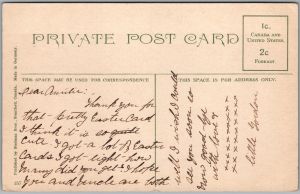 PRIVATE POST CARD
1c.
CANADA AND
UNITED STATES.
2c
FOREIGN
THIS SPACE MAY BE USED FOR CORRESPONDENCE
THIS SPACE IS FOR ADDRESS ONLY.
Dear
Thank you for
that pretty Easter Card
I think it is so
cute I got a lot of Easter
Cards I got eight how
many did you get. I hope
you and Uncle are both
well I wish I could
see you soon so
now good bye
with love &
xxxxxxxx
xxxxxxxx
Made in Germany